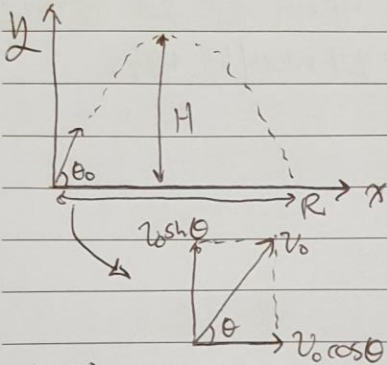 y
H
θ₀
x
R
v₀sinθ
v₀
θ
v₀cosθ